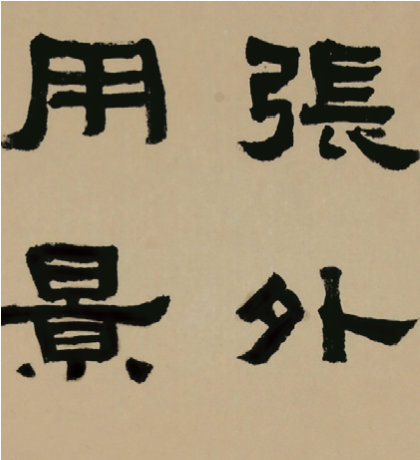 張外
用景